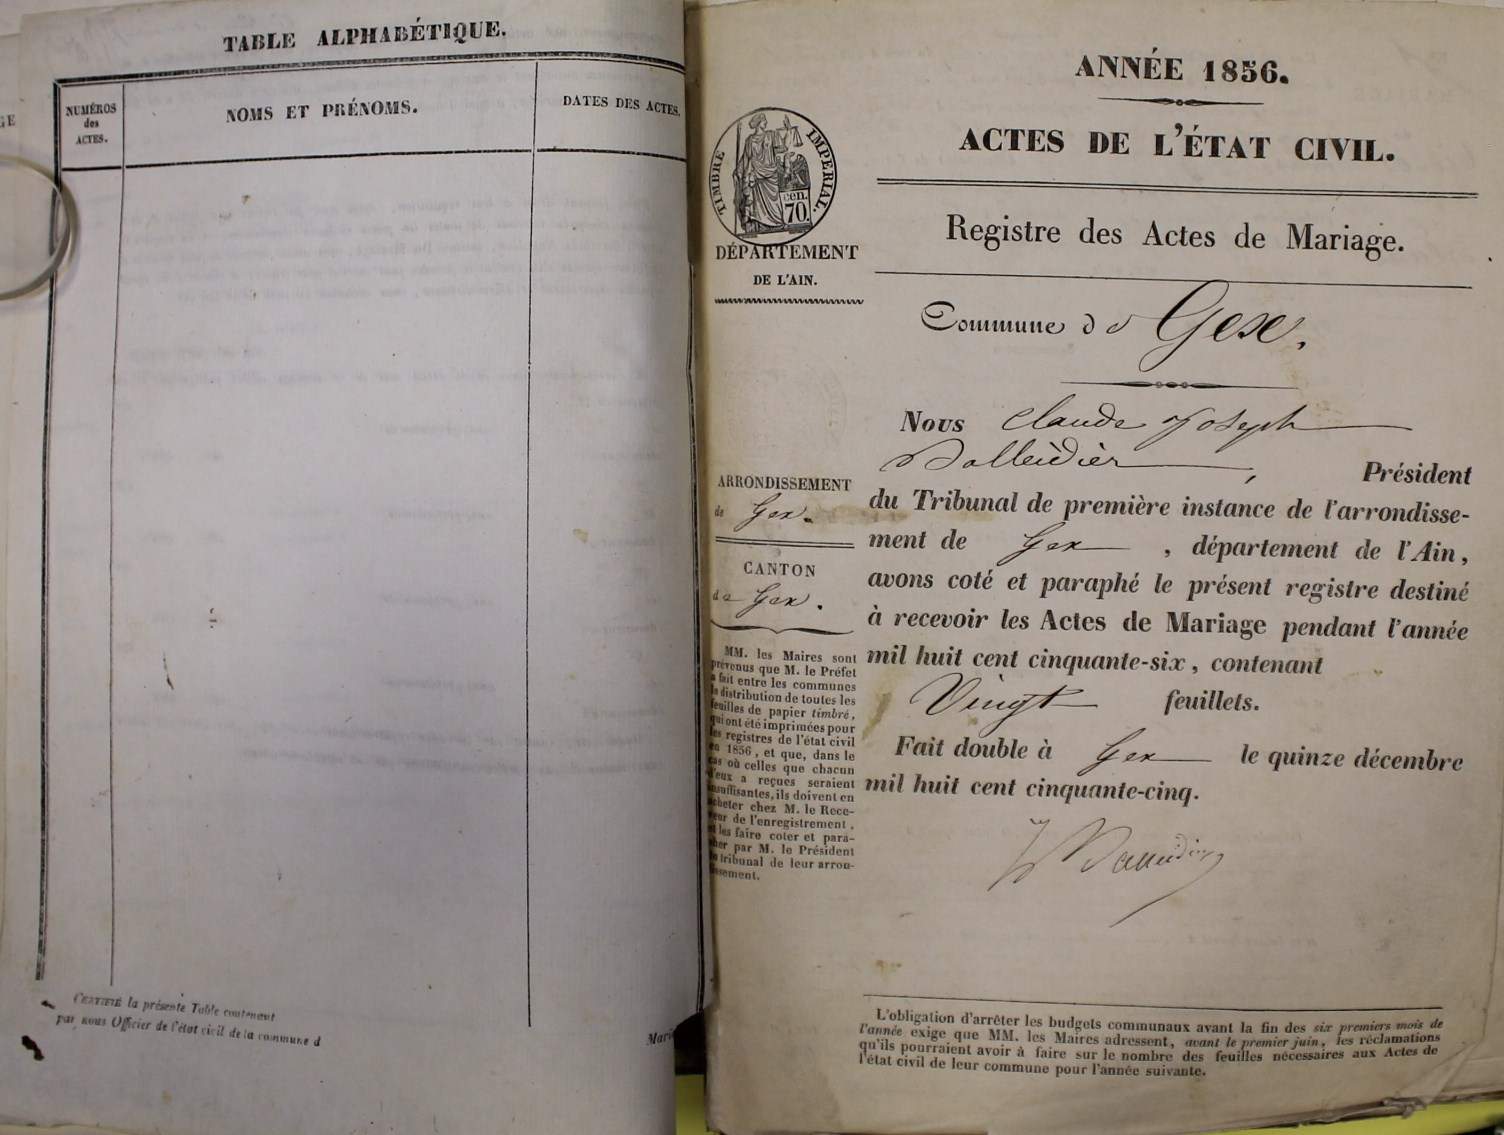 TABLE ALPHABÉTIQUE.
NUMÉROS
des
ACTES.
NOMS ET PRÉNOMS.
DATES DES ACTES.
CERTIFIÉ la présente Table contenant
par nous Officier de l'état civil de la commune d
ANNÉE 1856.
ACTES DE L'ÉTAT CIVIL.
Registre des Actes de Mariage.
TIMBRE IMPÉRIAL.
cen.
70.
DÉPARTEMENT
DE L'AIN.
Commune de Gex.
ARRONDISSEMENT
de Gex.
CANTON
de Gex.
MM. les Maires sont
prévenus que M. le Préfet
a fait entre les communes
la distribution de toutes les
feuilles de papier timbré,
qui ont été imprimées pour
les registres de l'état civil
en 1856, et que, dans le
cas où celles que chacun
d'eux a reçues seraient
insuffisantes, ils doivent en
acheter chez M. le Rece-
veur de l'enregistrement,
et les faire coter et para-
pher par M. le Président
du tribunal de leur arron-
dissement.
Nous Claude Joseph
, Président
du Tribunal de première instance de l'arrondisse-
ment de Gex , département de l'Ain,
avons coté et paraphé le présent registre destiné
à recevoir les Actes de Mariage pendant l'année
mil huit cent cinquante-six, contenant
Vingt feuillets.
Fait double à Gex le quinze décembre
mil huit cent cinquante-cinq.
L'obligation d'arrêter les budgets communaux avant la fin des six premiers mois de
l'année exige que MM. les Maires adressent, avant le premier juin, les réclamations
qu'ils pourraient avoir à faire sur le nombre des feuilles nécessaires aux Actes de
l'état civil de leur commune pour l'année suivante.